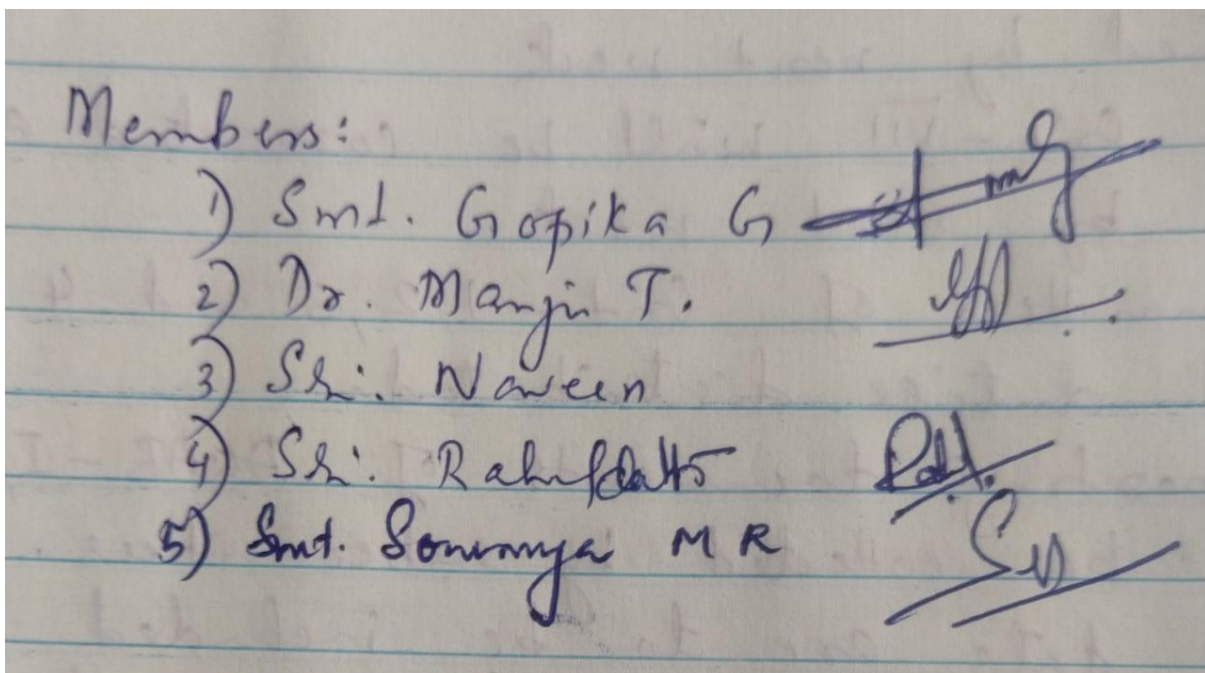 Members:
1) Smt. Gopika G
2) Dr. Manju T.
3) Sri. Naveen
4) Sri.
5) Smt. Sowmya M R